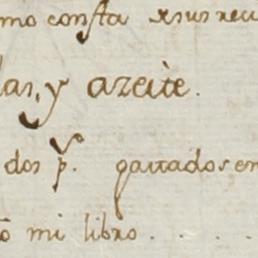 mo consta
las, y azeite.
dos p.^s gastados en
mi libro . . . .